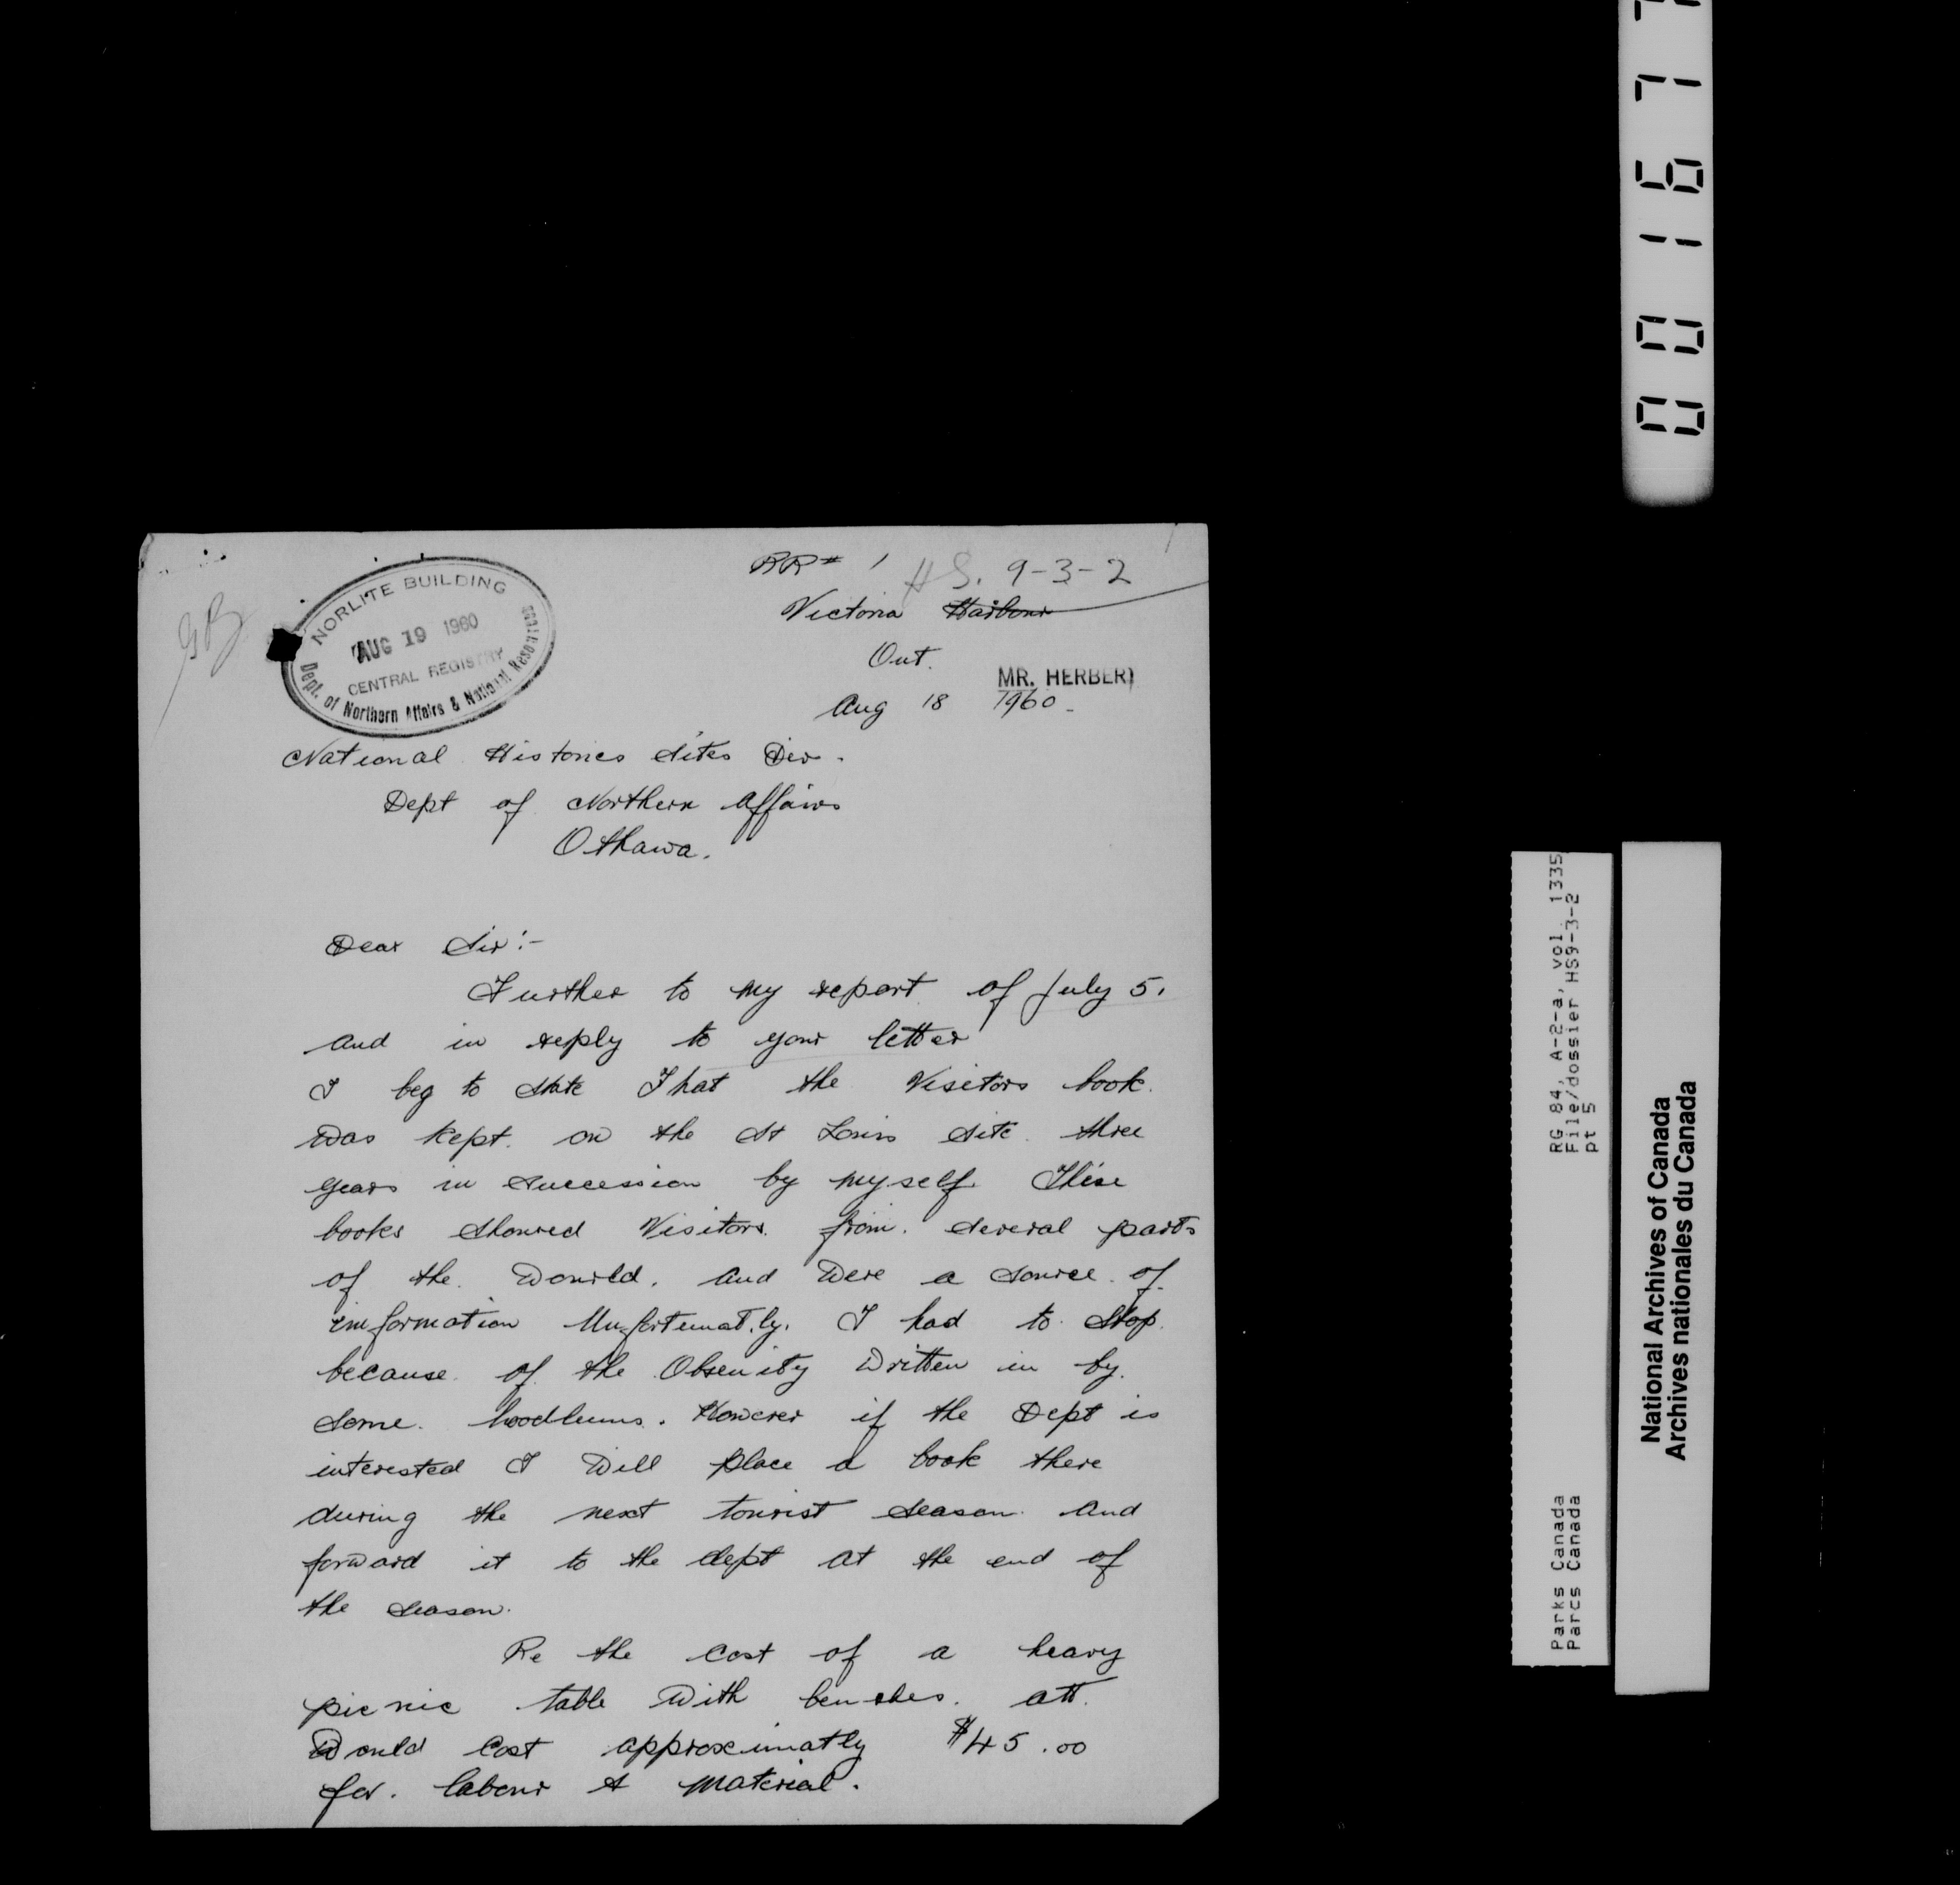 RR# 1 HS. 9-3-2
Victoria Harbour
Ont.
MR. HERBERT
Aug 18 1960
GB
NORLITE BUILDING
AUG 19 1960
CENTRAL REGISTRY
Dept. of Northern Affairs & National Resources
National Histories Sites Div.
Dept of Northern Affairs
Othawa.
Dear Sir:-
Further to my report of July 5.
and in reply to your letter
I beg to state That the Visitors book.
Was kept. on the St Louis site three
years in succession by myself. These
books showed Visitors. from. several parts
of the. Wourld. and Were a source of
imformation Unfortunatly. I had to stop.
because of the Obsenity Written in by.
some. hoodlums. However if the Dept is
interested I Will place a book there
during the next tourist season. and
forward it to the dept at the end of
the season.
Re the cost of a heavy
picnic table With benches. att.
Would Cost approximatly $45.00
for. labour & material.
0 0 1 6 7
RG 84, A-2-a, vol. 1335
File/dossier HS9-3-2
pt 5
Parks Canada
Parcs Canada
National Archives of Canada
Archives nationales du Canada